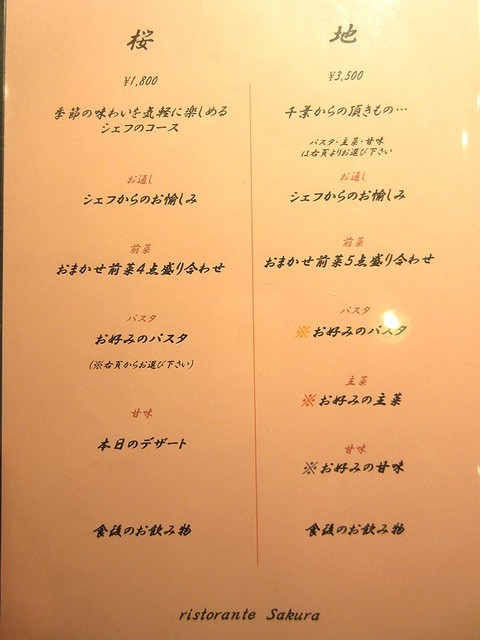 桜
¥1,800
季節の味わいを気軽に楽しめる
シェフのコース
お通し
シェフからのお愉しみ
前菜
おまかせ前菜4点盛り合わせ
パスタ
お好みのパスタ
(※右頁からお選び下さい)
甘味
本日のデザート
食後のお飲み物
地
¥3,500
千葉からの頂きもの…
パスタ・主菜・甘味
は右頁よりお選び下さい
お通し
シェフからのお愉しみ
前菜
おまかせ前菜5点盛り合わせ
パスタ
※お好みのパスタ
主菜
※お好みの主菜
甘味
※お好みの甘味
食後のお飲み物
ristorante Sakura